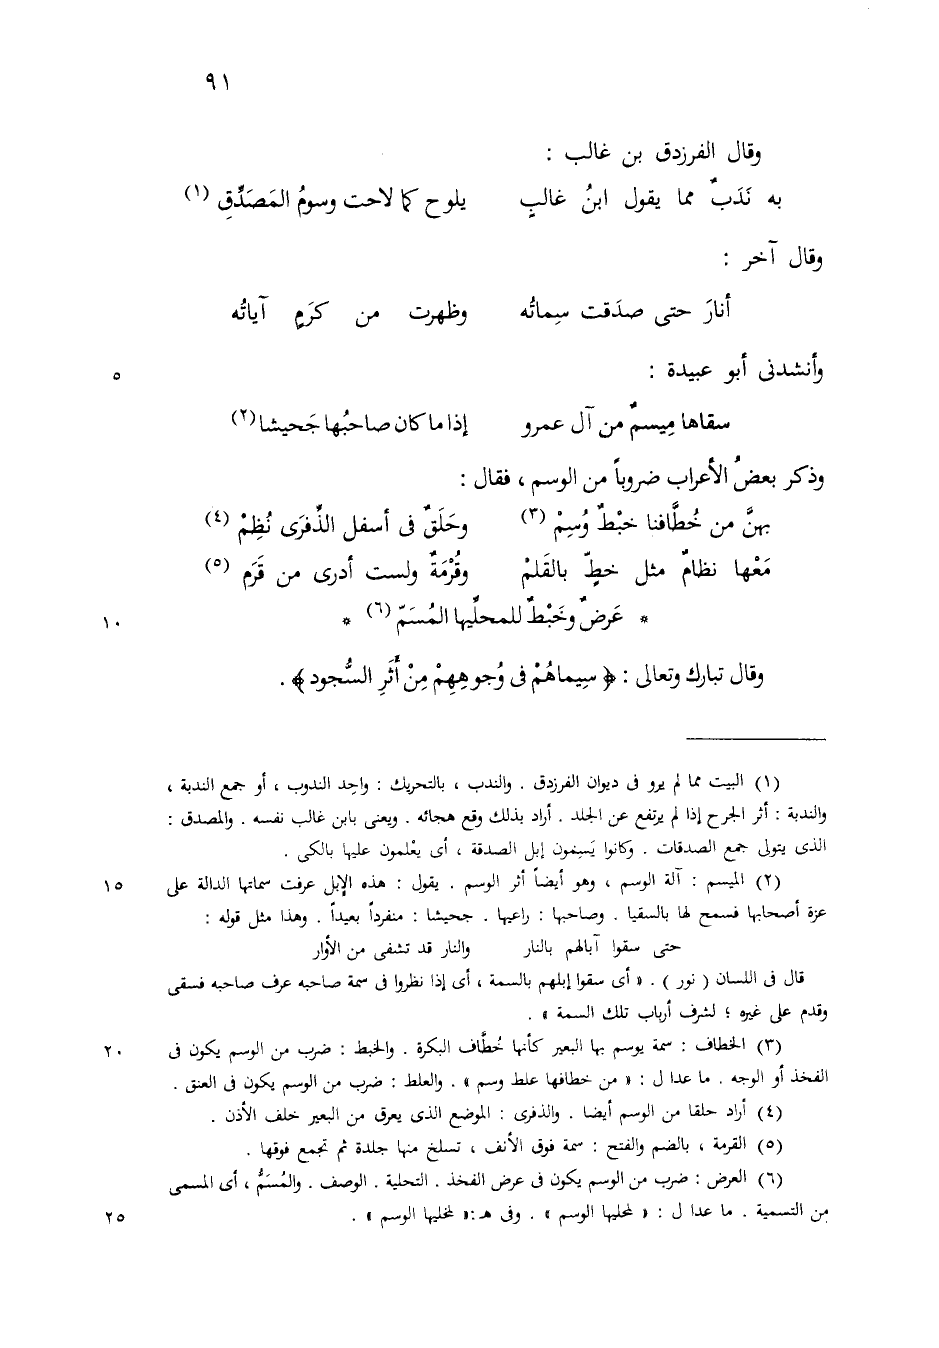 ٩١
وقال الفرزدق بن غالب :
به نَدَبٌ مما يقول ابنُ غالبٍ يلوح كما لاحت وسومُ المَصَدِّقِ (١)
وقال آخر :
أنارَ حتى صدَقت سِماتُه وظهرت من كرَمٍ آياتُه
وأنشدنى أبو عبيدة : ٥
سقاها مِيسمٌ من آل عمرو إذا ما كان صاحبُها جَحيشا (٢)
وذكر بعضُ الأعراب ضروباً من الوسم ، فقال :
بهنَّ من خُطَّافنا خبْطٌ وُسِمْ (٣) وحَلَقٌ فى أسفل الذِّفرَى نُظِمْ (٤)
مَعْها نظامٌ مثل خطٍّ بالقَلمْ وقُرْمَةٌ ولست أدرى من قَرَم (٥)
* عَرضٌ وخَبْطٌ للمحلِّيها المُسَمّ (٦) * ١٠
وقال تبارك وتعالى : ﴿ سِيماهُمْ فى وُجوهِهِمْ مِنْ أَثَرِ السُّجود ﴾ .
(١) البيت مما لم يرو فى ديوان الفرزدق . والندب ، بالتحريك : واحِد الندوب ، أو جمع الندبة ،
والندبة : أثر الجرح إذا لم يرتفع عن الجلد . أراد بذلك وقع هجائه . ويعنى بابن غالب نفسه . والمصدق :
الذى يتولى جمع الصدقات . وكانوا يَسِمون إبل الصدقة ، أى يعْلمون عليها بالكى .
(٢) الميسم : آلة الوسم ، وهو أيضاً أثر الوسم . يقول : هذه الإبل عرفت سماتها الدالة على ١٥
عزة أصحابها فسمح لها بالسقيا . وصاحبها : راعيها . جحيشا : منفرداً بعيداً . وهذا مثل قوله :
حتى سقوا آبالهم بالنار والنار قد تشفى من الأوار
قال فى اللسان ( نور ) . « أى سقوا إبلهم بالسمة ، أى إذا نظروا فى سمة صاحبه عرف صاحبه فسقى
وقدم على غيره ؛ لشرف أرباب تلك السمة » .
(٣) الخطاف : سمة يوسم بها البعير كأنها خُطَّاف البكرة . والخبط : ضرب من الوسم يكون فى ٢٠
الفخذ أو الوجه . ما عدا ل : « من خطافها علط وسم » . والعلط : ضرب من الوسم يكون فى العنق .
(٤) أراد حلقا من الوسم أيضا . والذفرى : الموضع الذى يعرق من البعير خلف الأذن .
(٥) القرمة ، بالضم والفتح : سمة فوق الأنف ، تسلخ منها جلدة ثم تجمع فوقها .
(٦) العرض : ضرب من الوسم يكون فى عرض الفخذ . التحلية . الوصف . والمُسَمُّ ، أى المسمى
من التسمية . ما عدا ل : « لمحليها الوسم » . وفى هـ : « لمخليها الوسم » . ٢٥